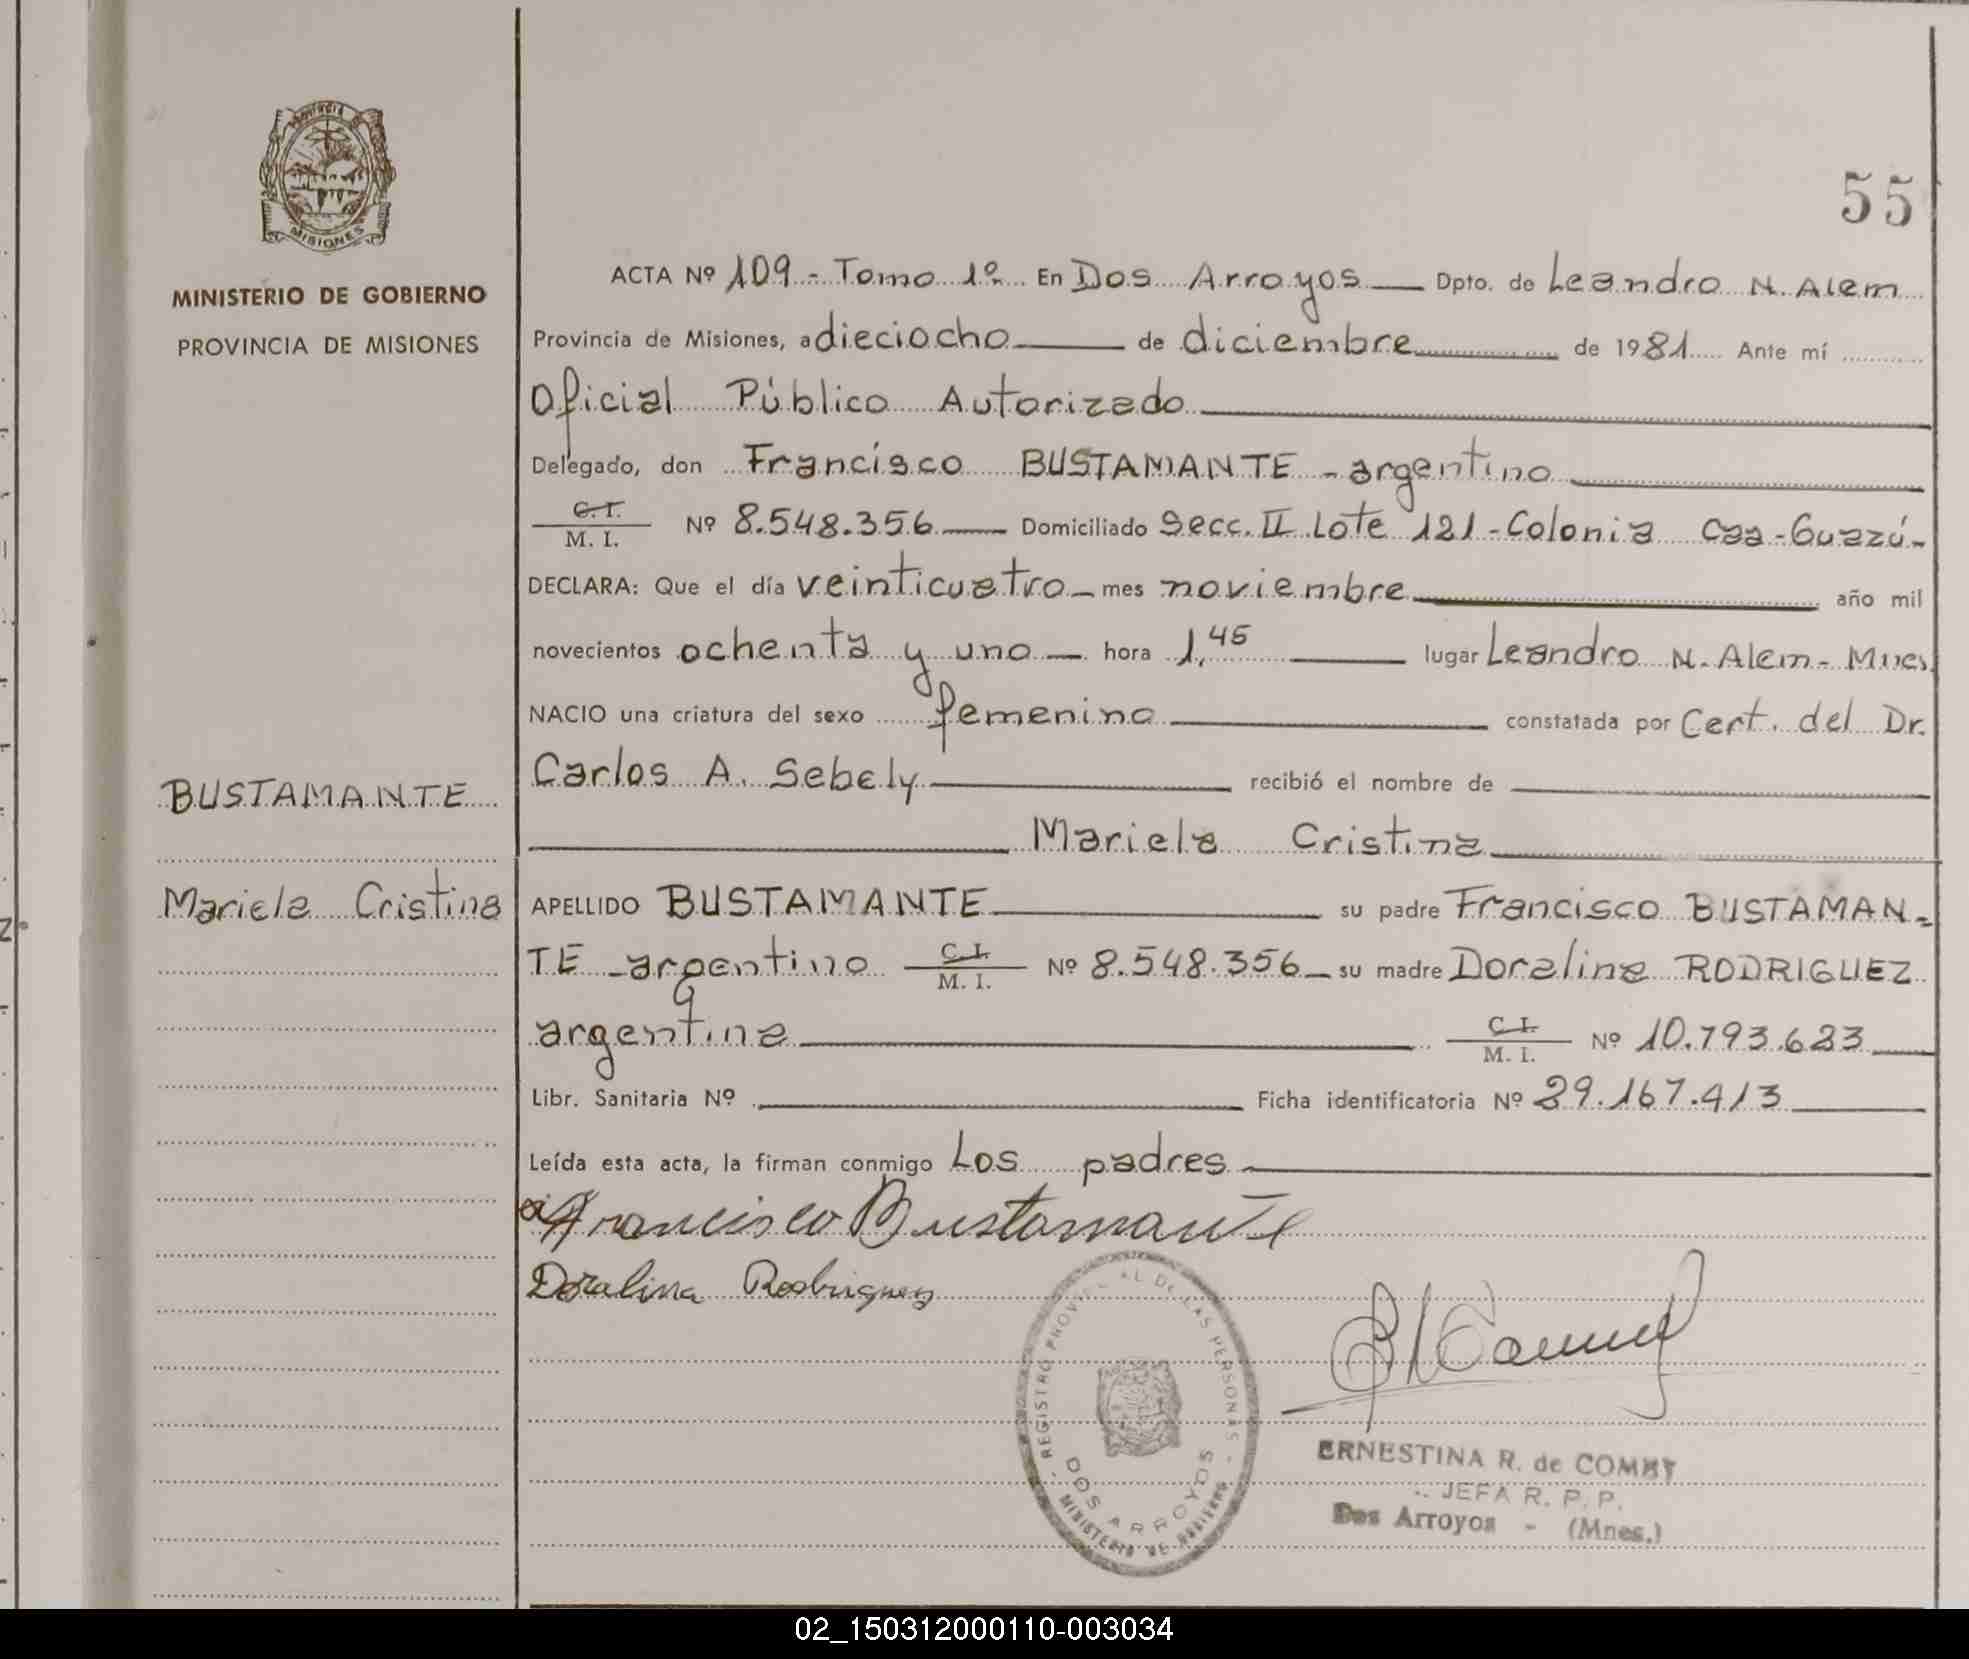 Provincia de
MISIONES
MINISTERIO DE GOBIERNO
PROVINCIA DE MISIONES
BUSTAMANTE
Mariela Cristina
55
ACTA Nº 109 - Tomo 1º En Dos Arroyos Dpto. de Leandro N. Alem
Provincia de Misiones, a dieciocho de diciembre de 1981 Ante mí
Oficial Público Autorizado
Delegado, don Francisco BUSTAMANTE - argentino
C.I. / M. I. Nº 8.548.356 Domiciliado Secc. II Lote 121 - Colonia Caa-Guazú-
DECLARA: Que el día veinticuatro mes noviembre año mil
novecientos ochenta y uno hora 1,45 lugar Leandro N. Alem - Mnes.
NACIO una criatura del sexo femenino constatada por Cert. del Dr.
Carlos A. Sebely recibió el nombre de
Mariela Cristina
APELLIDO BUSTAMANTE su padre Francisco BUSTAMAN-
TE - argentino C.I. / M. I. Nº 8.548.356 su madre Doralina RODRIGUEZ
argentina C.I. / M. I. Nº 10.793.623
Libr. Sanitaria Nº Ficha identificatoria Nº 29.167.413
Leída esta acta, la firman conmigo Los padres
Francisco Bustamante
Doralina Rodriguez
REGISTRO PROVINCIAL DE LAS PERSONAS
DOS ARROYOS
MINISTERIO DE GOBIERNO
ERNESTINA R. de
JEFA R. P. P.
Dos Arroyos - (Mnes.)
02_150312000110-003034